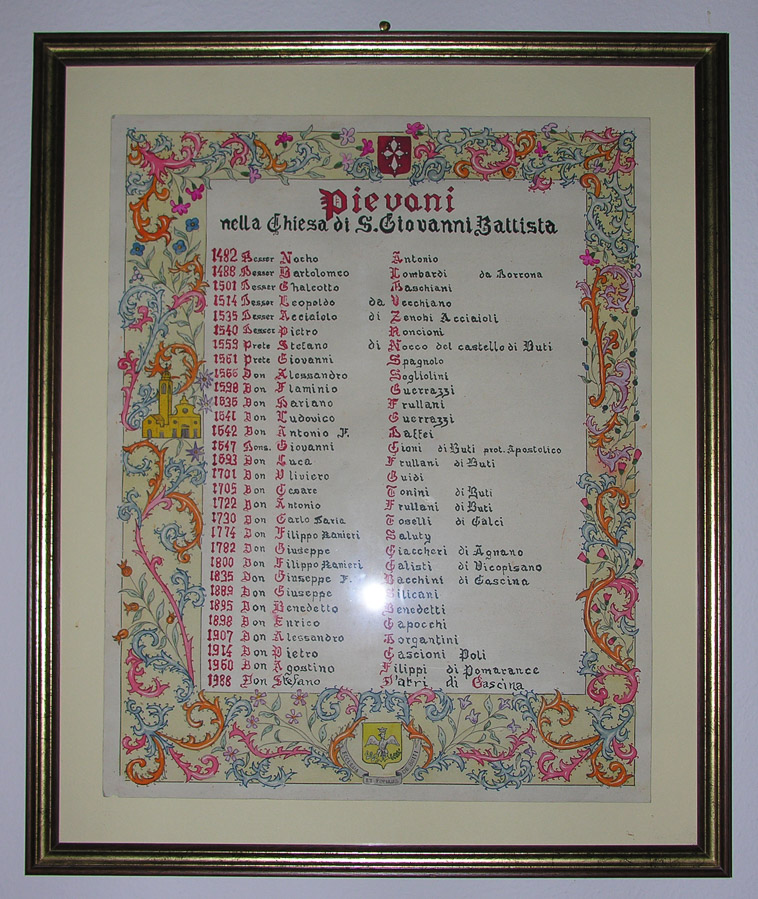 Pievani
nella Chiesa di S. Giovanni Battista
1482 Messer Nocho Antonio
1488 Messer Bartolomeo Lombardi da Borrona
1501 Messer Ghalcotto Maschiani
1514 Messer Leopoldo da Vecchiano
1535 Messer Acciaiolo di Zenobi Acciaioli
1540 Messer Pietro Roncioni
1559 Prete Stefano di Nocco del castello di Buti
1561 Prete Giovanni Spagnolo
1566 Don Alessandro Sogliolini
1598 Don Flaminio Guerrazzi
1636 Don Mariano Frullani
1641 Don Ludovico Guerrazzi
1642 Don Antonio F. Maffei
1647 Mons. Giovanni Cioni di Buti prot. Apostolico
1693 Don Luca Frullani di Buti
1701 Don Uliviero Guidi
1705 Don Cesare Tonini di Buti
1722 Don Antonio Frullani di Buti
1730 Don Carlo Maria Toselli di Calci
1774 Don Filippo Ranieri Saluty
1782 Don Giuseppe Giaccheri di Agnano
1800 Don Filippo Ranieri Galisti di Vicopisano
1835 Don Giuseppe F. Bacchini di Cascina
1889 Don Giuseppe Milicani
1895 Don Benedetto Benedetti
1898 Don Enrico Capocchi
1907 Don Alessandro Morgantini
1914 Don Pietro Cascioni Poli
1950 Don Agostino Filippi di Pomarance
1988 Don Stefano D'atri di Cascina